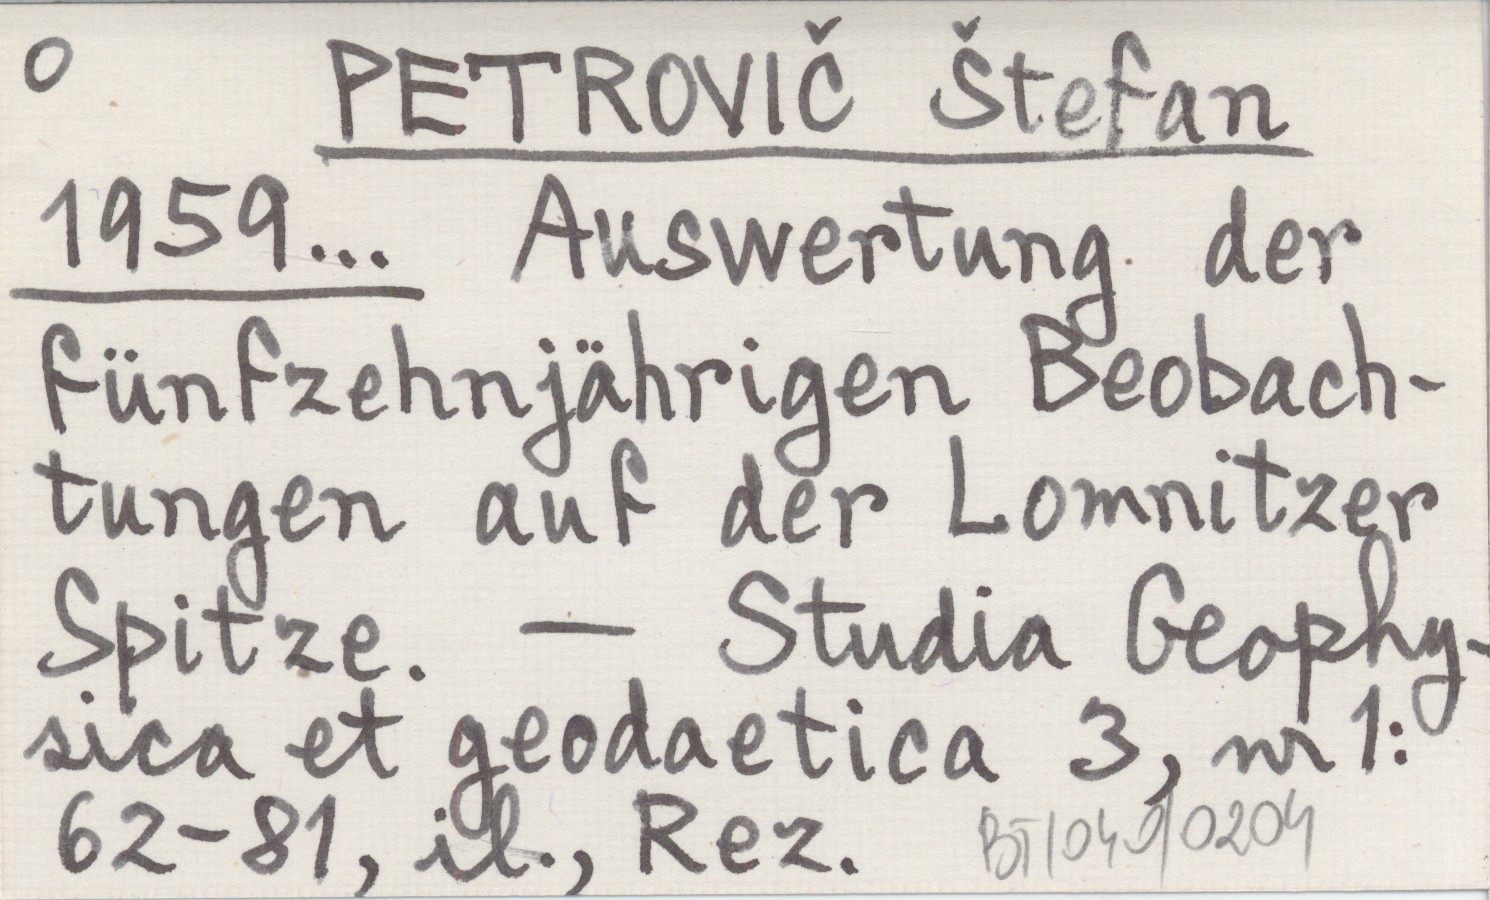 O PETROVIČ Štefan
1959... Auswertung der
fünfzehnjährigen Beobach-
tungen auf der Lomnitzer
Spitze. — Studia Geophy-
sica et geodaetica 3, nr 1:
62-81, il., Rez. BT/049/0204